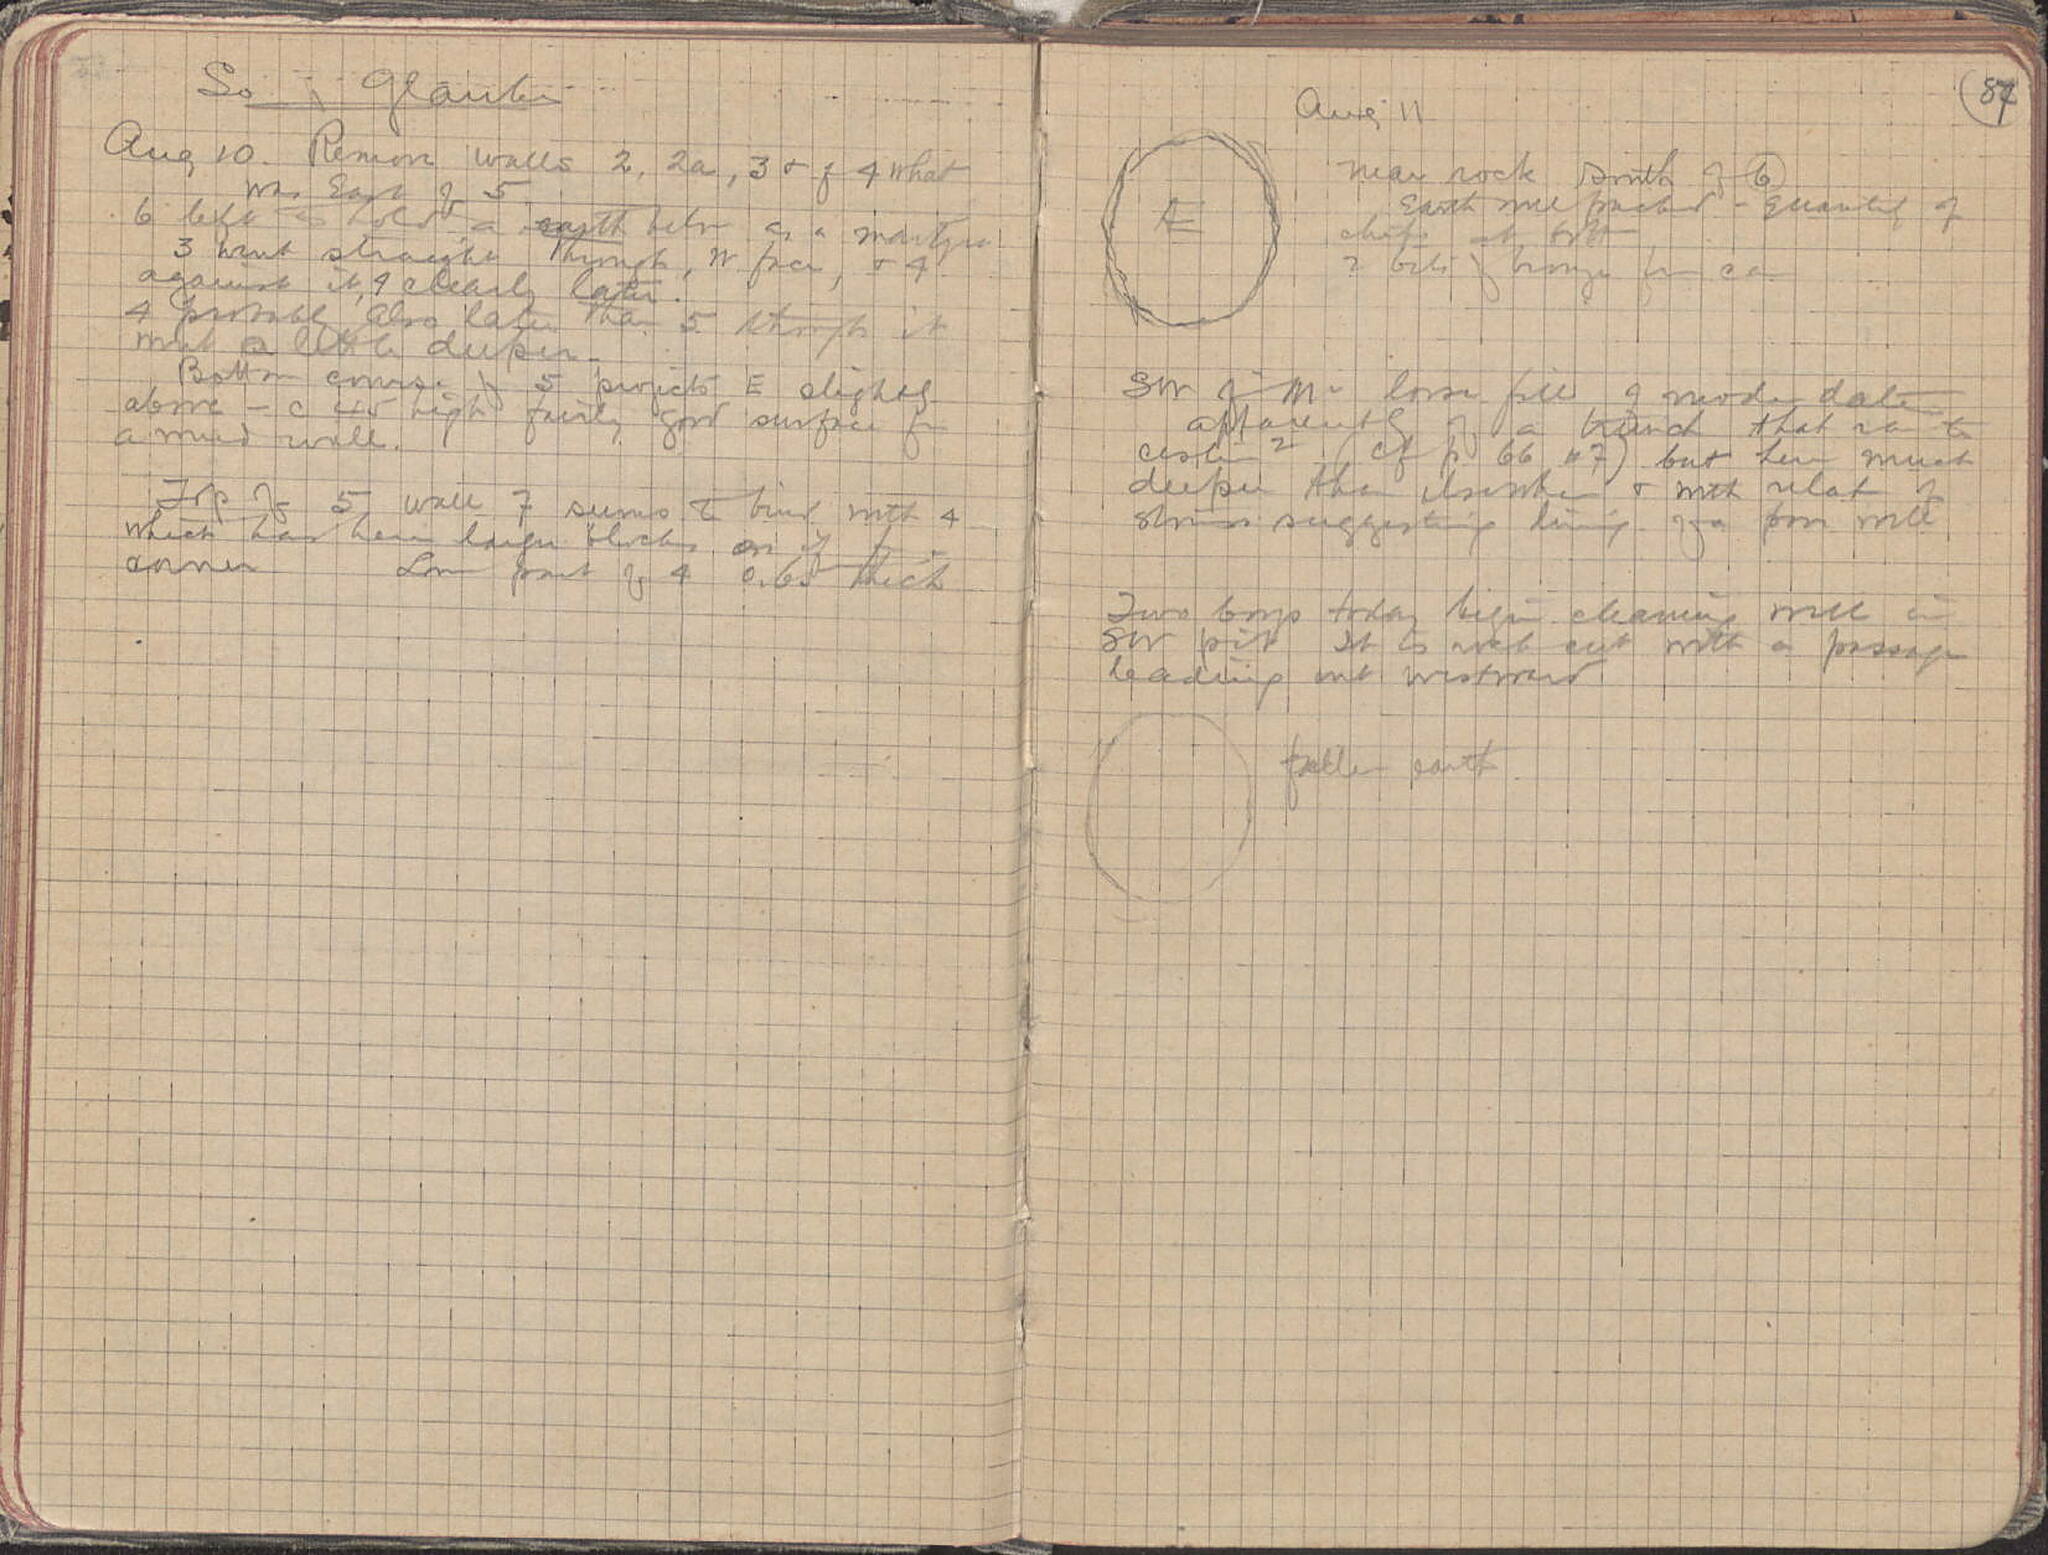 So of Glauke
Aug 10. Remove walls 2, 2a, 3 & of 4 what
was East of 5
6 left to hold a earth below as a
3 went straight through, W face, & 4
against it, 4 clearly later.
4 probably also later than 5 though it
went a little deeper.
Bottom course of 5 projects E slightly
above - c 45 high fairly good surface for
a mud wall.
Top of 5 wall 7 seems to bind with 4
which has here larger blocks on it for
corner Low part of 4 0.65 thick
87
Aug 11
AE
near rock south of 6
Earth well packed - quantity of
chips at bottom
2 bits of bronze from
SW of loose fill of modern date
apparently of a trench that ran to
cistern 2 (cf p 66 #7) but here much
deeper than elsewhere & with
stones suggesting lining of a poor well
Two boys today begin cleaning well in
SW pit It is rock cut with a passage
leading out westward
fallen earth